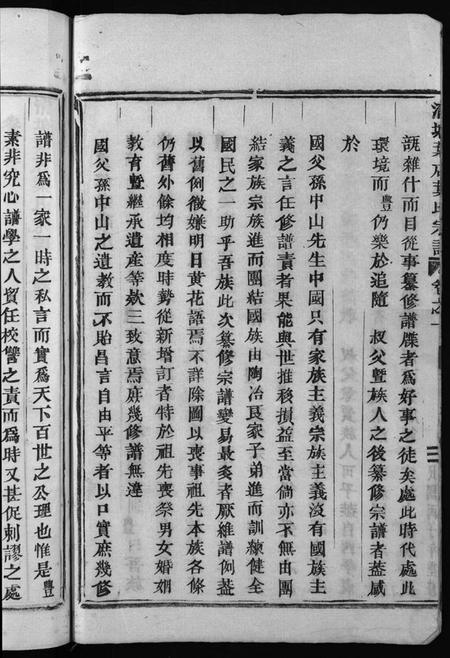 葉氏宗譜 卷之一
翫雜什而目從事纂修譜牒者爲好事之徒矣處此時代處此
環境而豐仍樂於追隨 叔父暨族人之後纂修宗譜者蓋感
於
國父孫中山先生中國只有家族主義宗族主義沒有國族主
義之言任修譜責者果能與世推移損益至當倘亦不無由團
結家族宗族進而團結國族由陶冶良家子弟進而訓練健全
國民之一助乎吾族此次纂修宗譜變易最多者厥維譜例蓋
以舊例微嫌明日黃花語焉不詳除圖以喪事祖先本族各條
仍舊外餘均相度時勢從新增訂者特於祖先喪祭男女婚姻
教育暨繼承遺產等欵三致意焉庶幾修譜無違
國父孫中山之遺教而不貽昌言自由平等者以口實庶幾修
譜非爲一家一時之私言而實爲天下百世之公理也惟是豐
素非究心譜學之人貿任校讐之責而爲時又甚促刺謬之處